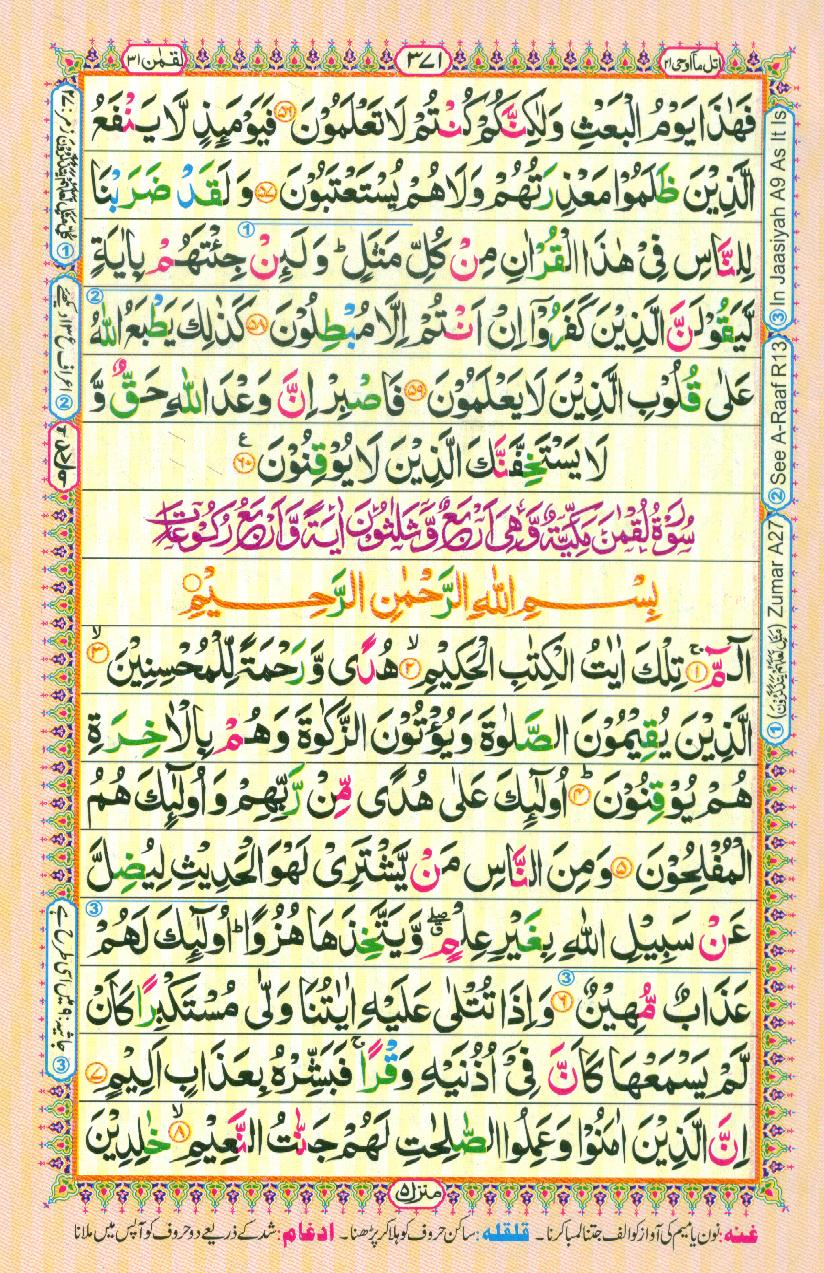 اتل ما اوحی ۲۱
۳۷۱
لقمٰن ۳۱
فَهٰذَا یَوْمُ الْبَعْثِ وَلٰكِنَّكُمْ كُنْتُمْ لَا تَعْلَمُوْنَ ۵۶ فَیَوْمَىِٕذٍ لَّا یَنْفَعُ
الَّذِیْنَ ظَلَمُوْا مَعْذِرَتُهُمْ وَلَا هُمْ یُسْتَعْتَبُوْنَ ۵۷ وَ لَقَدْ ضَرَبْنَا
لِلنَّاسِ فِیْ هٰذَا الْقُرْاٰنِ مِنْ كُلِّ مَثَلٍ ؕ وَ لَىِٕنْ جِئْتَهُمْ بِاٰیَةٍ
لَّیَقُوْلَنَّ الَّذِیْنَ كَفَرُوْۤا اِنْ اَنْتُمْ اِلَّا مُبْطِلُوْنَ ۵۸ كَذٰلِكَ یَطْبَعُ اللّٰهُ
عَلٰی قُلُوْبِ الَّذِیْنَ لَا یَعْلَمُوْنَ ۵۹ فَاصْبِرْ اِنَّ وَعْدَ اللّٰهِ حَقٌّ وَّ
لَا یَسْتَخِفَّنَّكَ الَّذِیْنَ لَا یُوْقِنُوْنَ ۶۰ ع
سُوْرَةُ لُقْمٰنَ مَكِّیَّةٌ وَّهِیَ اَرْبَعٌ وَّثَلٰثُوْنَ اٰیَةً وَّاَرْبَعُ رُكُوْعَاتٍ
بِسْمِ اللّٰهِ الرَّحْمٰنِ الرَّحِیْمِ
الٓمّٓ ۱ تِلْكَ اٰیٰتُ الْكِتٰبِ الْحَكِیْمِ ۲ هُدًی وَّ رَحْمَةً لِّلْمُحْسِنِیْنَ ۳
الَّذِیْنَ یُقِیْمُوْنَ الصَّلٰوةَ وَ یُؤْتُوْنَ الزَّكٰوةَ وَ هُمْ بِالْاٰخِرَةِ
هُمْ یُوْقِنُوْنَ ۴ اُولٰٓىِٕكَ عَلٰی هُدًی مِّنْ رَّبِّهِمْ وَ اُولٰٓىِٕكَ هُمُ
الْمُفْلِحُوْنَ ۵ وَمِنَ النَّاسِ مَنْ یَّشْتَرِیْ لَهْوَ الْحَدِیْثِ لِیُضِلَّ
عَنْ سَبِیْلِ اللّٰهِ بِغَیْرِ عِلْمٍ وَّ یَتَّخِذَهَا هُزُوًا ؕ اُولٰٓىِٕكَ لَهُمْ
عَذَابٌ مُّهِیْنٌ ۶ وَ اِذَا تُتْلٰی عَلَیْهِ اٰیٰتُنَا وَلّٰی مُسْتَكْبِرًا كَاَنْ
لَّمْ یَسْمَعْهَا كَاَنَّ فِیْۤ اُذُنَیْهِ وَقْرًا ۚ فَبَشِّرْهُ بِعَذَابٍ اَلِیْمٍ ۷
اِنَّ الَّذِیْنَ اٰمَنُوْا وَ عَمِلُوا الصّٰلِحٰتِ لَهُمْ جَنّٰتُ النَّعِیْمِ ۸ خٰلِدِیْنَ
منزل ۵
غنه: نون یا میم کی آواز کو الف جتنا لمبا کرنا ۔ قلقله: ساکن حروف کو ہلا کر پڑھنا ۔ ادغام: شد کے ذریعے دو حروف کو آپس میں ملانا
① Zumar A27 ② See A-Raaf R13 ③ In Jaasiyah A9 As It Is